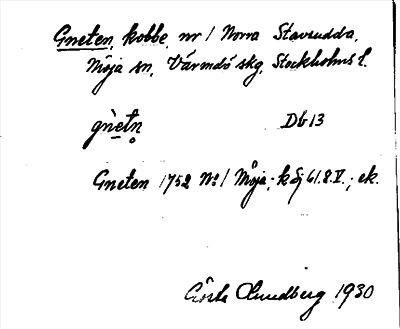 Gneten, kobbe, nr 1 Norra Stavsudda,
Möja sn, Värmdö skg, Stockholms l.
gnètn̥ Db 13
Gneten 1752 No 1 Möja; k 61.8.V.; ek.
Gösta Sundberg 1930